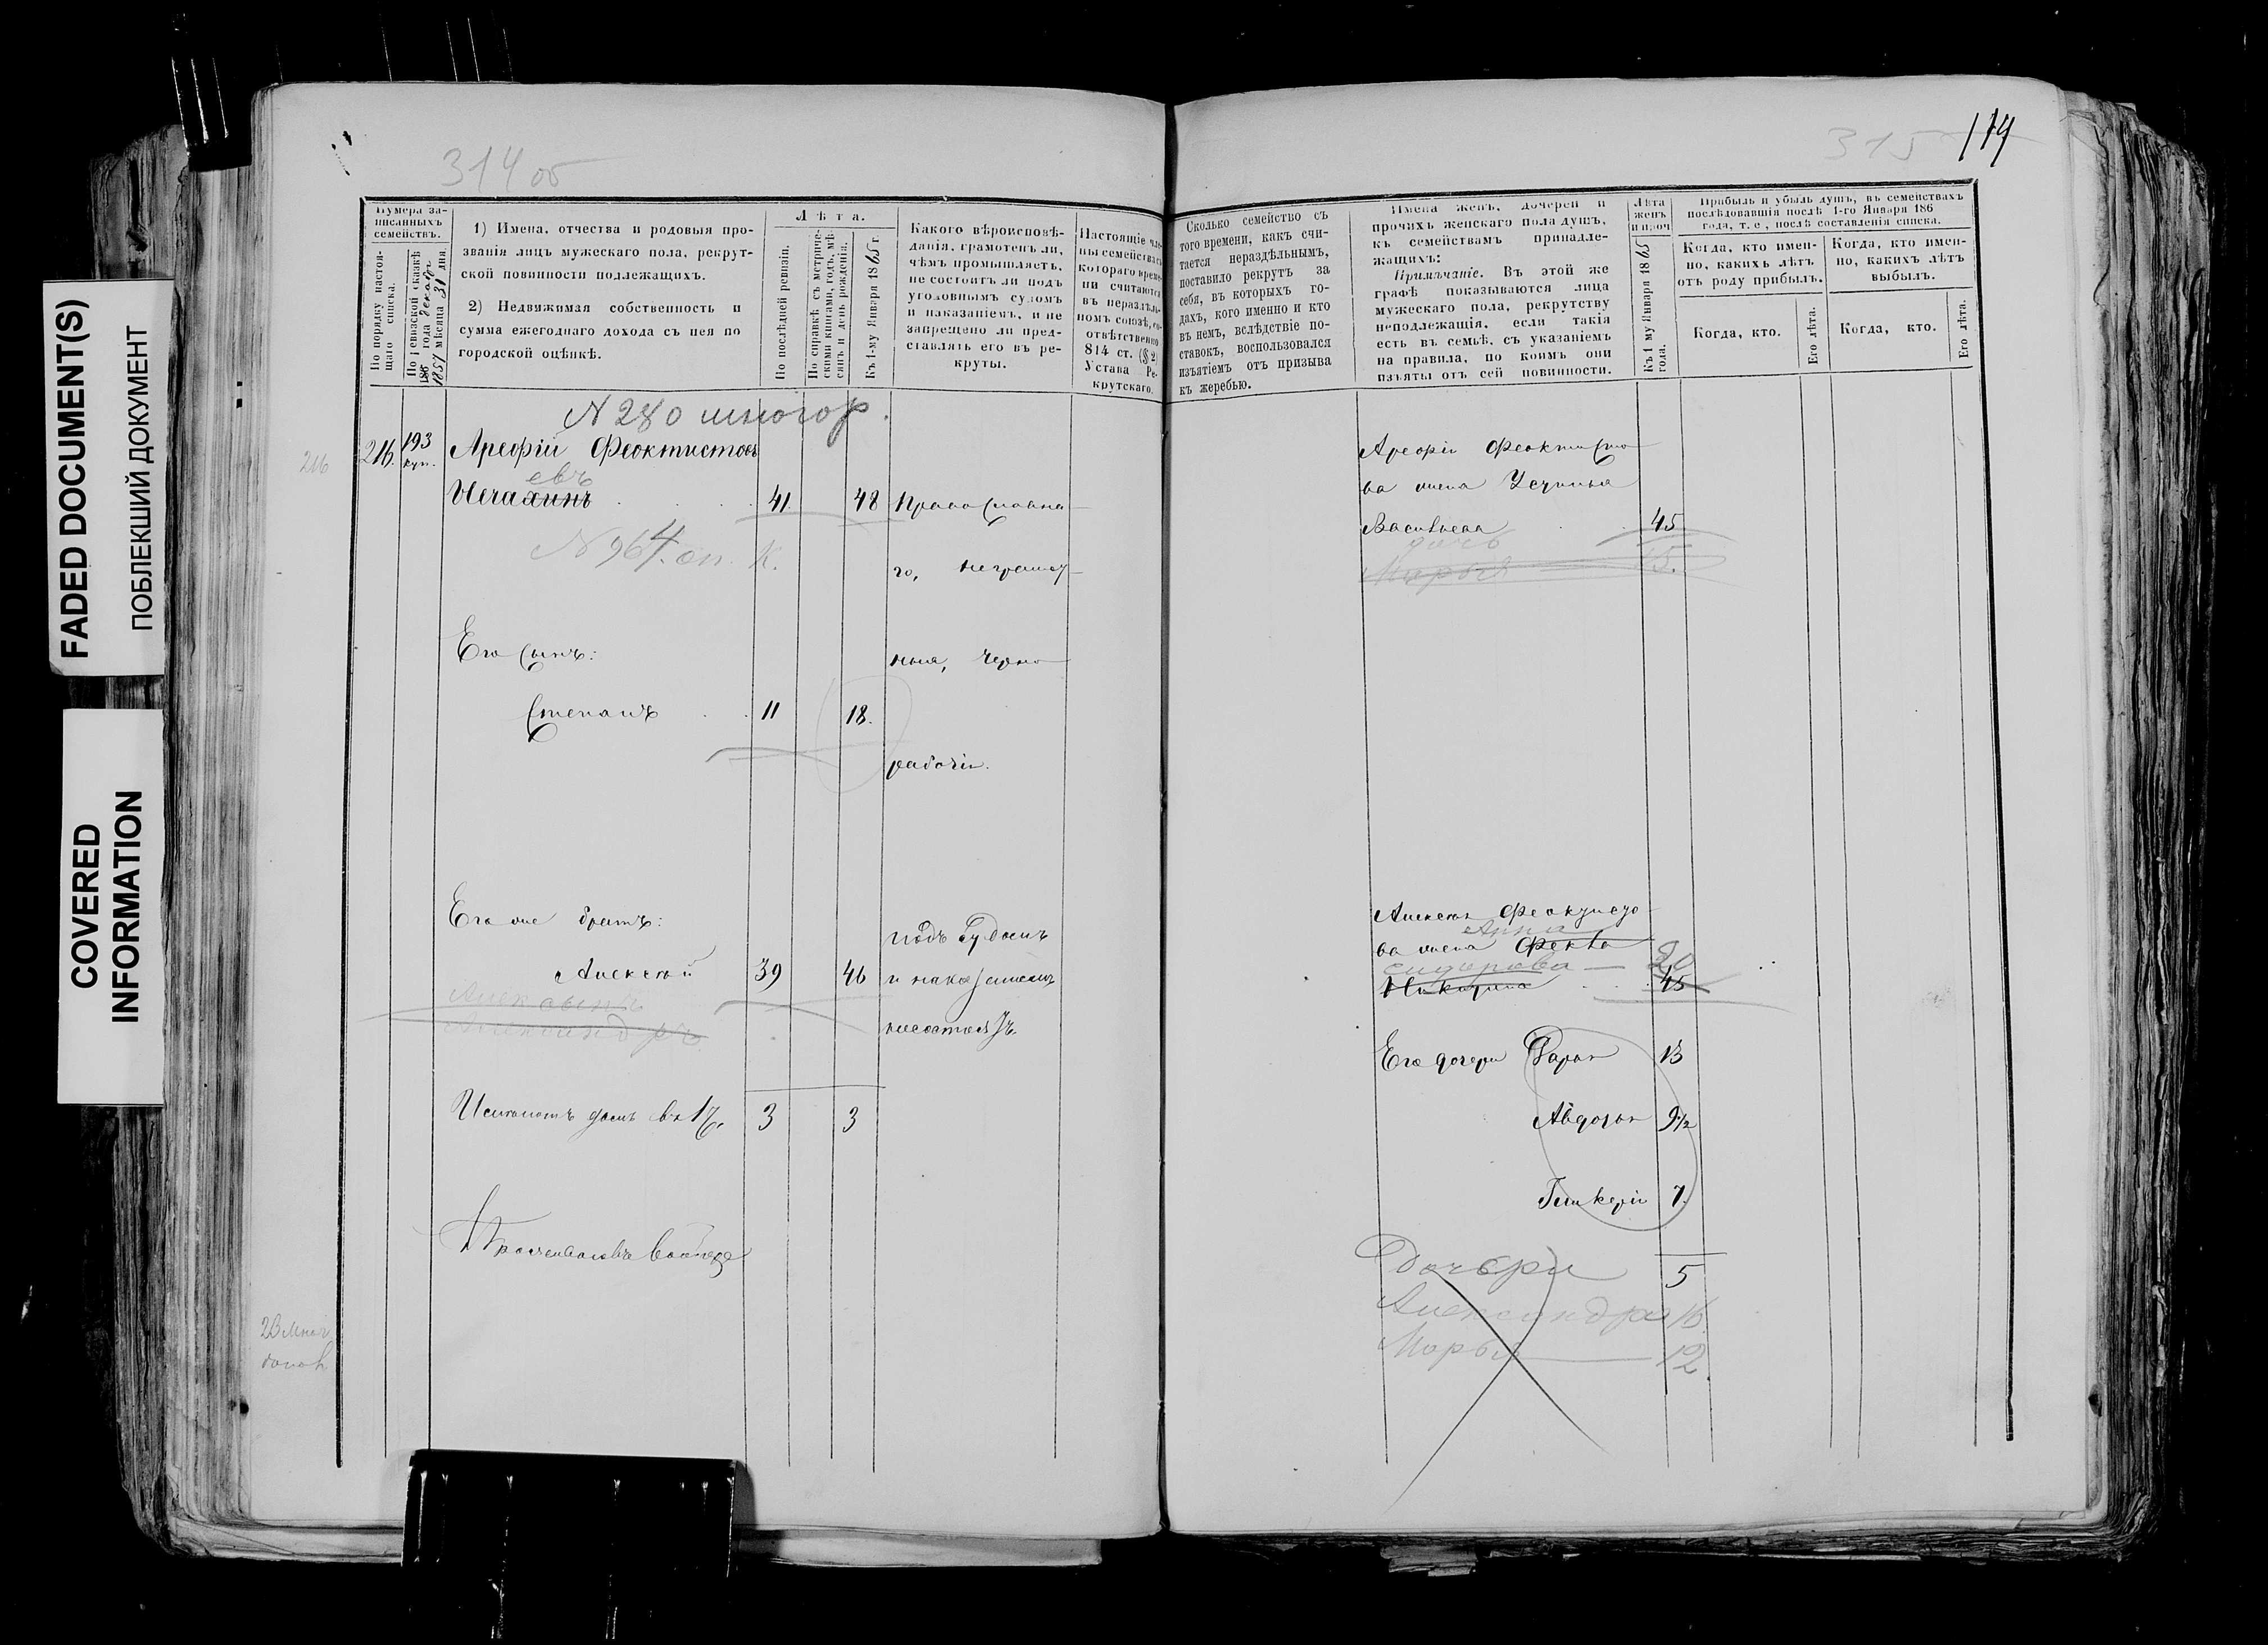 FADED DOCUMENT(S)
ПОБЛЕКШИЙ ДОКУМЕНТ
COVERED
INFORMATION
314 об
Нумера за-
писанныхъ
семействъ.
По порядку настоя-
щаго списка.
По ревизской сказкѣ
185 года декабр
1857 мѣсяца 31 дня.
1) Имена, отчества и родовыя про-
званія лицъ мужескаго пола, рекрут-
ской повинности подлежащихъ.
2) Недвижимая собственность и
сумма ежегоднаго дохода съ нея по
городской оцѣнкѣ.
Лѣта.
По послѣдней ревизіи.
По справкѣ съ метриче-
скими книгами, годъ, мѣ-
сяцъ и день рожденія.
Къ 1-му Января 1865 г.
Какого вѣроисповѣ-
данія, грамотенъ ли,
чѣмъ промышляетъ,
не состоитъ ли подъ
уголовнымъ судомъ
и наказаніемъ, и не
запрещено ли пред-
ставлять его въ ре-
круты.
Настоящіе чле-
ны семейства съ
котораго време-
ни считаются
въ нераздѣль-
номъ союзѣ, со-
отвѣтственно
814 ст. (§ 2)
Устава Ре-
крутскаго.
N 280
216
216.
193
куп.
Арефій Феоктистовъ
евъ
41
48
Православна
N 964. оп. к.
го, неграмот
Его сынъ:
ныя, черно
Степанъ
11
18.
рабочіи.
Его же братъ:
подъ судомъ
Алексѣй
39
46
и наказаніемъ
Александръ
несостоятъ.
3
3
315
114
Сколько семейство съ
того времени, какъ счи-
тается нераздѣльнымъ,
поставило рекрутъ за
себя, въ которыхъ го-
дахъ, кого именно и кто
въ немъ, вслѣдствіе по-
ставокъ, воспользовался
изъятіемъ отъ призыва
къ жеребью.
Имена женъ, дочерей и
прочихъ женскаго пола душъ,
къ семействамъ принадле-
жащихъ:
Примѣчаніе. Въ этой же
графѣ показываются лица
мужескаго пола, рекрутству
неподлежащія, если такія
есть въ семьѣ, съ указаніемъ
на правила, по коимъ они
изъяты отъ сей повинности.
Лѣта
женъ
и проч
Къ 1 му Января 1865
года.
Прибыль и убыль душъ, въ семействахъ
послѣдовавшія послѣ 1-го Января 186
года, т. е, послѣ составленія списка.
Когда, кто имен-
но, какихъ лѣтъ
отъ роду прибылъ.
Когда, кто имен-
но, какихъ лѣтъ
выбылъ.
Когда, кто.
Его лѣта.
Когда, кто.
Его лѣта.
Арефія Феоктисто
ва жена Устинья
Васильева
45
дочь
Марья 15.
Алексѣя Феоктисто
Анна
ва жена Фекла
сидорова 20
Никитина 45
Его дочери Дарья 13
Авдотья 9 1/2
Гликерія 7.
5
Дочери
Александра 16
Марья 12